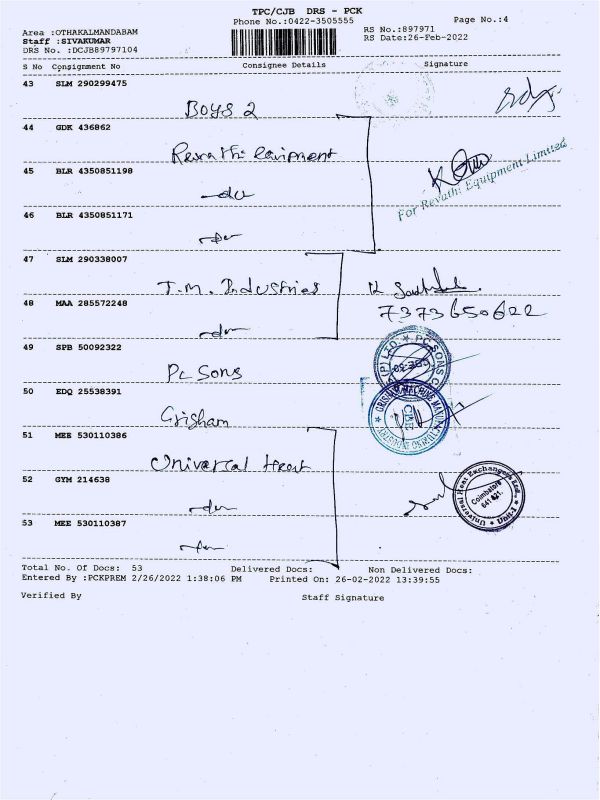 TPC/CJB DRS - PCK
Phone No.:0422-3505555
Page No.:4
Area :OTHAKALMANDABAM
Staff :SIVAKUMAR
DRS No. :DCJB89797104
RS No.:897971
RS Date:26-Feb-2022
S No Consignment No Consignee Details Signature
43 SLM 290299475
Boys 2
44 GDK 436862
Revathi Equipment
45 BLR 4350851198
-do-
For Revathi Equipment Limited
46 BLR 4350851171
-do-
47 SLM 290338007
T.M. Industries
48 MAA 285572248
7373650622
-do-
49 SPB 50092322
Pc Sons
50 EDQ 25538391
Grisham
51 MEE 530110386
Universal Heat
52 GYM 214638
-do-
Universal Heat Exchangers Ltd., Unit-I
Coimbatore
641 021.
53 MEE 530110387
-do-
Total No. Of Docs: 53 Delivered Docs: Non Delivered Docs:
Entered By :PCKPREM 2/26/2022 1:38:06 PM Printed On: 26-02-2022 13:39:55
Verified By Staff Signature